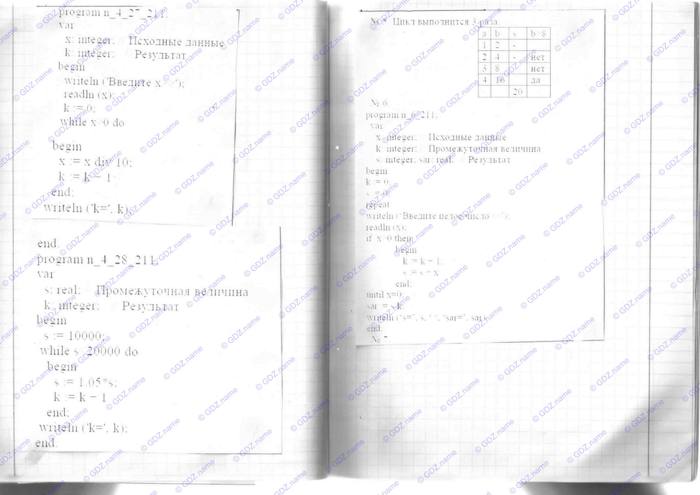 program n_4_27_211;
var
x: integer; Исходные данные
k: integer; Результат
begin
writeln ('Введите x
readln (x);
k := 0;
while x 0 do
begin
x := x div 10;
k := k 1
end;
writeln ('k=', k);
end.
program n_4_28_211;
var
s: real; Промежуточная величина
k: integer; Результат
begin
s := 10000;
while s 20000 do
begin
s := 1.05*s;
k := k 1
end;
writeln ('k=', k);
end.
Цикл выполнится 3 раза
a b s b s
1 2 -
2 4 - нет
3 8 нет
4 16 да
20
№ 6.
program n_6_211;
var
x integer; Исходные данные
k integer; Промежуточная величина
s: integer; sar: real; Результат
begin
k = 0
s
repeat
writeln ('Введите целое число
readln (x);
if x 0 then
begin
k := k 1;
s := s x
end;
until x=0;
sar = s k
writeln ('s=', s, 'sar=', sar
end.
№
© GDZ.name